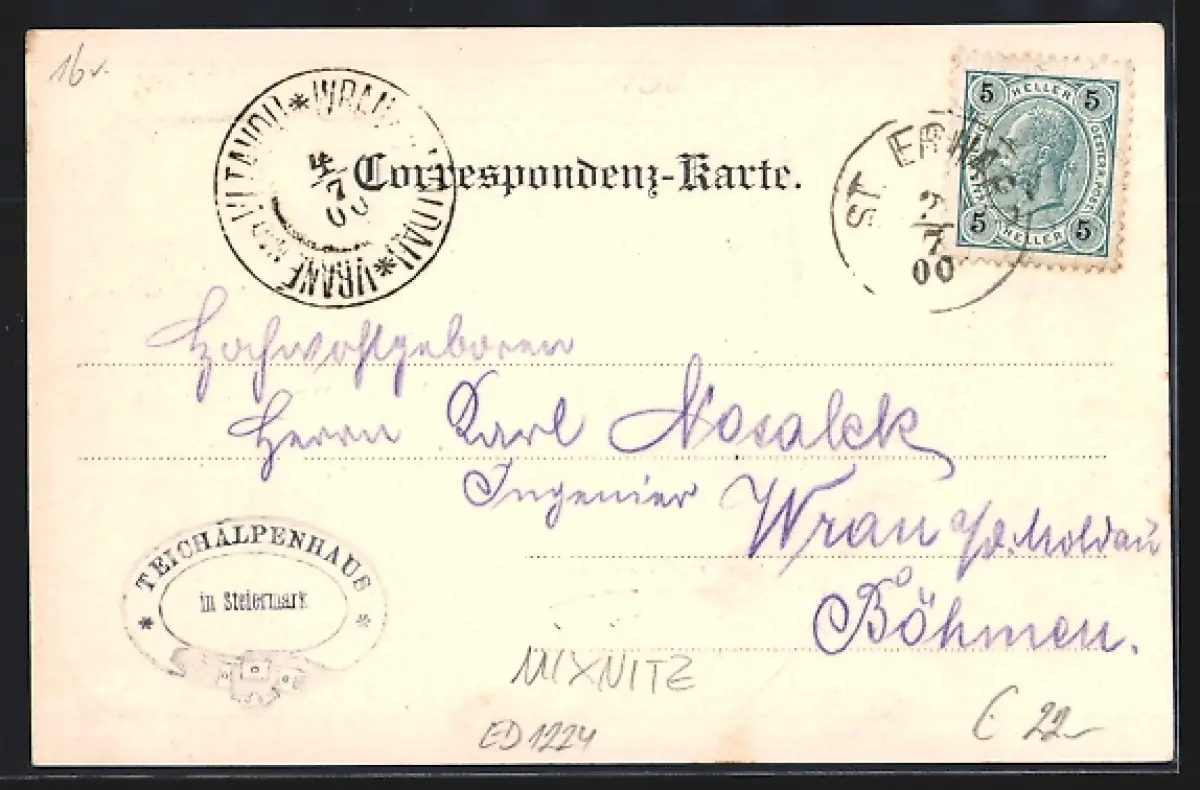 16 v.
Correspondenz-Karte.
4/7
00
VRANÉ
5 HELLER 5
5 HELLER 5
ST. ER
7
00
Hochwohlgeboren
Herrn Karl Nosalek
Ingenier Wran a/d. Moldau
Böhmen.
* TEICHALPENHAUS *
in Steiermark
MIXNITZ
ED1224
€ 22-